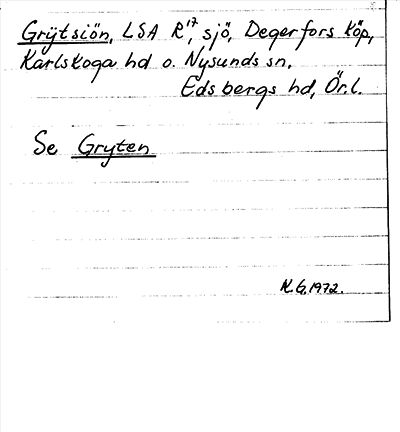 Grÿtsiön, LSA R¹⁷, sjö, Degerfors köp,
Karlskoga hd o. Nysunds sn,
Edsbergs hd, Ör.l.
Se Gryten
K.G. 1972.